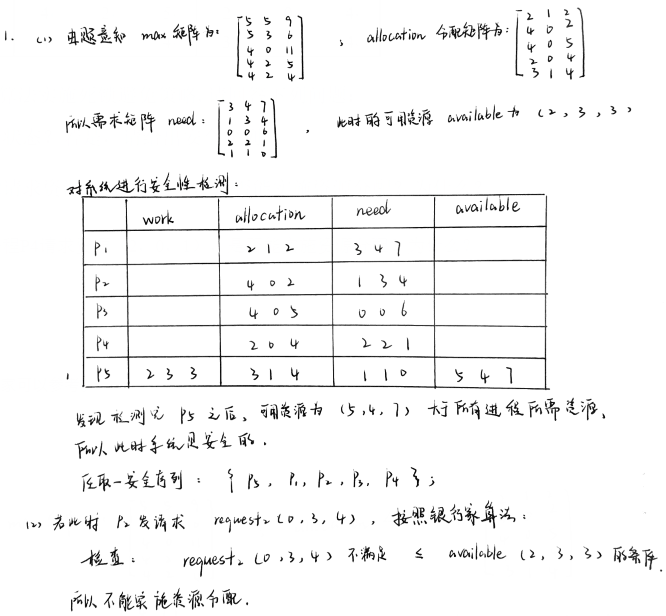 1. (1) 由题意知 max 矩阵为: [5 5 9 ; allocation 分配矩阵为: [2 1 2
5 3 6 4 0 2
4 0 11 4 0 5
4 2 5 2 0 4
4 2 4] 3 1 4]
所以需求矩阵 need: [3 4 7 , 此时的可用资源 available 为 (2, 3, 3)
1 3 4
0 0 6
2 2 1
1 1 0]
对系统进行安全性检测:
work allocation need available
P1 2 1 2 3 4 7
P2 4 0 2 1 3 4
P3 4 0 5 0 0 6
P4 2 0 4 2 2 1
P5 2 3 3 3 1 4 1 1 0 5 4 7
发现检测完 P5 之后, 可用资源为 (5,4,7) 大于所有进程所需资源,
所以此时系统是安全的.
任取一安全序列: { P5, P1, P2, P3, P4 };
(2) 若此时 P2 发请求 request2 (0, 3, 4), 按照银行家算法:
检查: request2 (0, 3, 4) 不满足 ≤ available (2, 3, 3) 的条件.
所以不能实施资源分配.